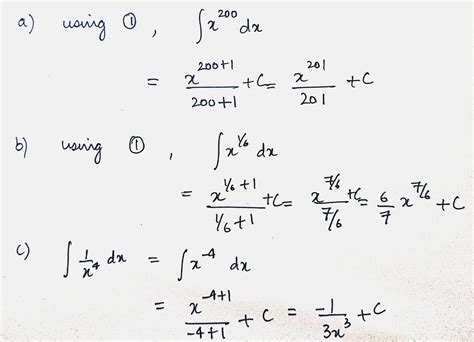 a) using ①, ∫x^200 dx
= x^(200+1)/(200+1) + C = x^201/201 + C
b) using ①, ∫x^(1/6) dx
= x^(1/6+1)/(1/6+1) + C = x^(7/6)/(7/6) + C = 6/7 x^(7/6) + C
c) ∫1/x^4 dx = ∫x^-4 dx
= x^(-4+1)/(-4+1) + C = -1/(3x^3) + C